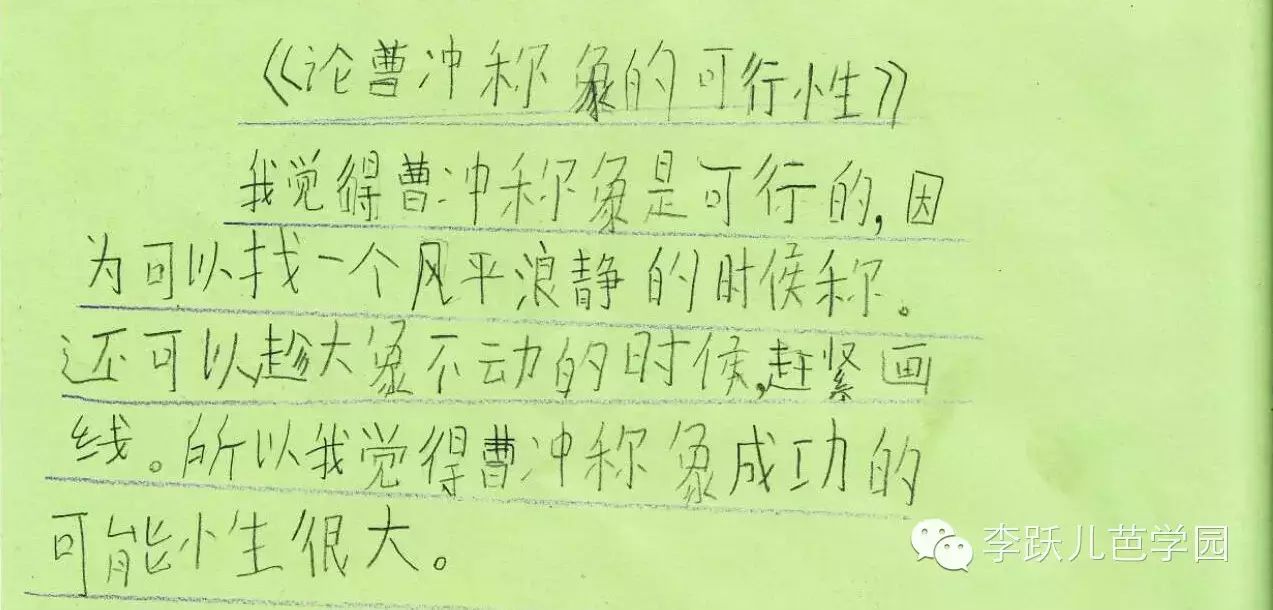 《论曹冲称象的可行性》
我觉得曹冲称象是可行的,因
为可以找一个风平浪静的时候称。
还可以趁大象不动的时候,赶紧画
线。所以我觉得曹冲称象成功的
可能性很大。
李跃儿芭学园